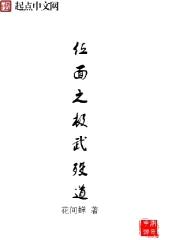 起点中文网
位面之极武双道
花间蝉 著